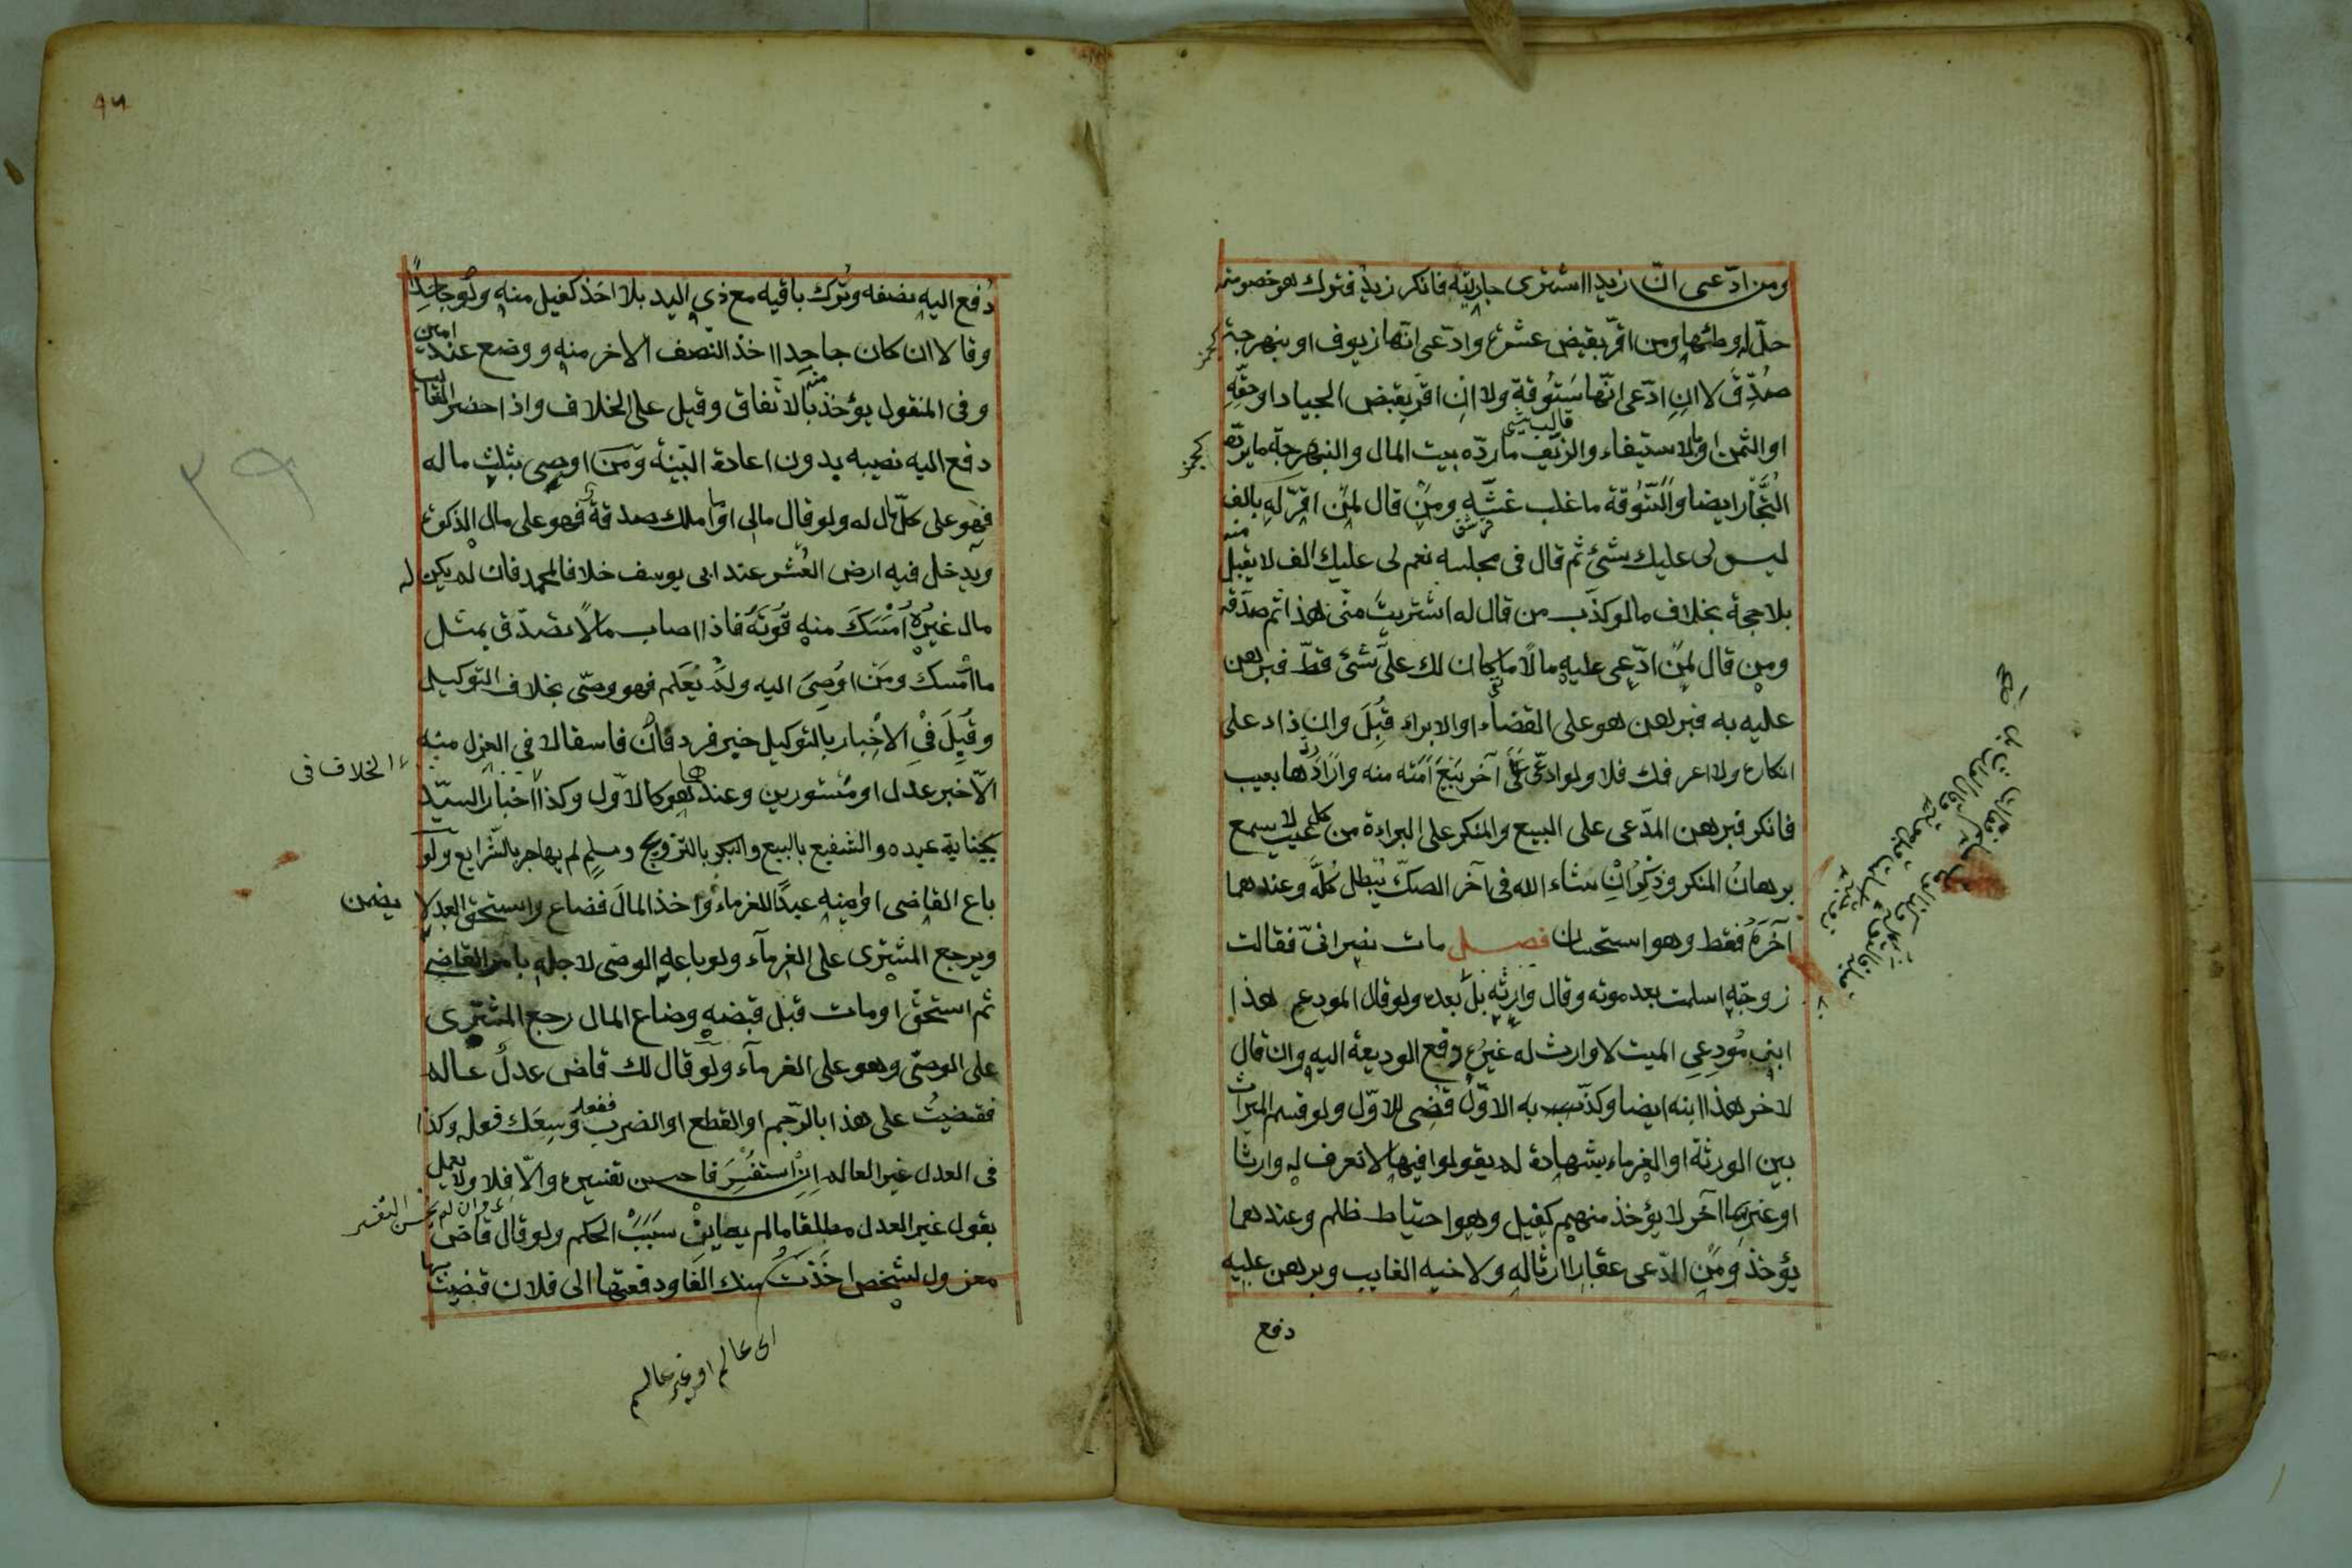 ومن ادّعى انّ زيدا اشترى جاريته فانكر زيد فترك هو خصومته
حلّ له وطئها ومن اقرّ بقبض عشرة وادّعى انّها زيوف او بنهرجة
صُدِّقَ لا انِ ادّعى انّها سَتُوقة ولا انِ اقرّ بقبض الجياد او حقِّهِ
او الثمن او بالاستيفاء والزيف ما ردّه بيت المال والنبهرجة ما يردّه
التُجّار ايضا والسّتوقة ما غلب غشّه ومن قال لمن اقرّ له بالف
ليس لى عليك شئ ثم قال فى مجلسه نعم لى عليك الف لا يقبل منه
بلا حجة بخلاف ما لو كذّب من قال له اشتريتَ منّى هذا ثم صدّقه
ومن قال لمن ادّعى عليه مالاً ما كان لك علىّ شئ قطّ فبرهن
عليه به فبرهن هو على القضاء او الابراء قُبِلَ وان زاد على
انكاره ولا اعرفك فلا ولو ادّعى على آخر بَيْعَ اَمَته منه واراد ردّها بعيب
فانكر فبرهن المدّعى على البيع والمنكر على البراءة من كل عيب لا يسمع
برهانُ المنكر وذِكرُ انْ شاء الله فى آخر الصكّ يُبطل كُلَّه وعندهما
آخرَهُ فقط وهو استحسان فصل مات نصرانىّ فقالت
زوجته اسلمت بعد موته وقال وارثه بل بعده ولو قال المودع هذا
ابن مُودِعِى الميت لا وارث له غيرُه دفع الوديعة اليه وان قال
لاخر هذا ابنه ايضا وكذّب به الاوّل قضى للاوّل ولو قسم الميراث
بين الورثة او الغرماء بشهادة لم يقولوا فيها لا نعرف له وارثا
او غريما آخر لا يؤخذ منهم كفيل وهو احتياط ظلم وعندهما
يؤخذ ومن ادّعى عقارا ارثا له ولاخيه الغايب وبرهن عليه
دفع
دُفع اليه نصفه وتُرك باقيه مع ذى اليد بلا اخذ كفيل منه ولو جاحِدًا
وقالا ان كان جاحدا اخذ النصف الاخر منه ووضع عند امين
وفى المنقول يؤخذ منه بالاتفاق وقيل على الخلاف واذا حضر الغائب
دفع اليه نصيبه بدون اعادة البيّنة ومن اوصى بثلث ماله
فهو على كلّ مال له ولو قال مالى او ما املك صدقة فهو على مال الزكوة
ويدخل فيه ارض العُشر عند ابى يوسف خلافا لمحمد فان لم يكن له
مال غيرُه اَمْسَكَ منه قُوتَهُ فاذا اصاب مالاً تصدّق بمثل
ما امسك ومَن اُوصِىَ اليه ولم يَعْلَم فهو وصىّ بخلاف التوكيل
وقُبِلَ فى الاخبار بالتوكيل خبر فرد وان فاسقا لا فى العزل منه
الخلاف فى
الّا خبر عدل او مستورين وعندهما هو كالاوّل وكذا اخبار السيّد
بجناية عبده والشفيع بالبيع والبكر بالتزويج ومسلمٍ لم يهاجر بالشرايع ولو
باع القاضى او امينه عبدًا للغرماء واخذ المالَ فضاع واستحق العبد لا يضمن
ويرجع المشترى على الغرمآء ولو باعه الوصى لاجله بامر القاضى
ثم استحق او مات قبل قبضه وضاع المال رجع المشترى
على الوصىّ وهو على الغرمآء ولو قال لك قاض عدلٌ عالم
فقضيتُ على هذا بالرّجم او القطع او الضرب فافعله وَسِعَك فعله وكذا
فى العدل غير العالم اِن استفسر فاحسن تفسيره والّا فلا ولا يعمل
وان لم يحسن التفسير
بقول غير العدل مطلقا ما لم يعاين سَبَبَ الحكم ولو قال قاض
معزول لشخص اخذتُ منك الفا ودفعتها الى فلان قضيتُ بها
اى عالم او غير عالم